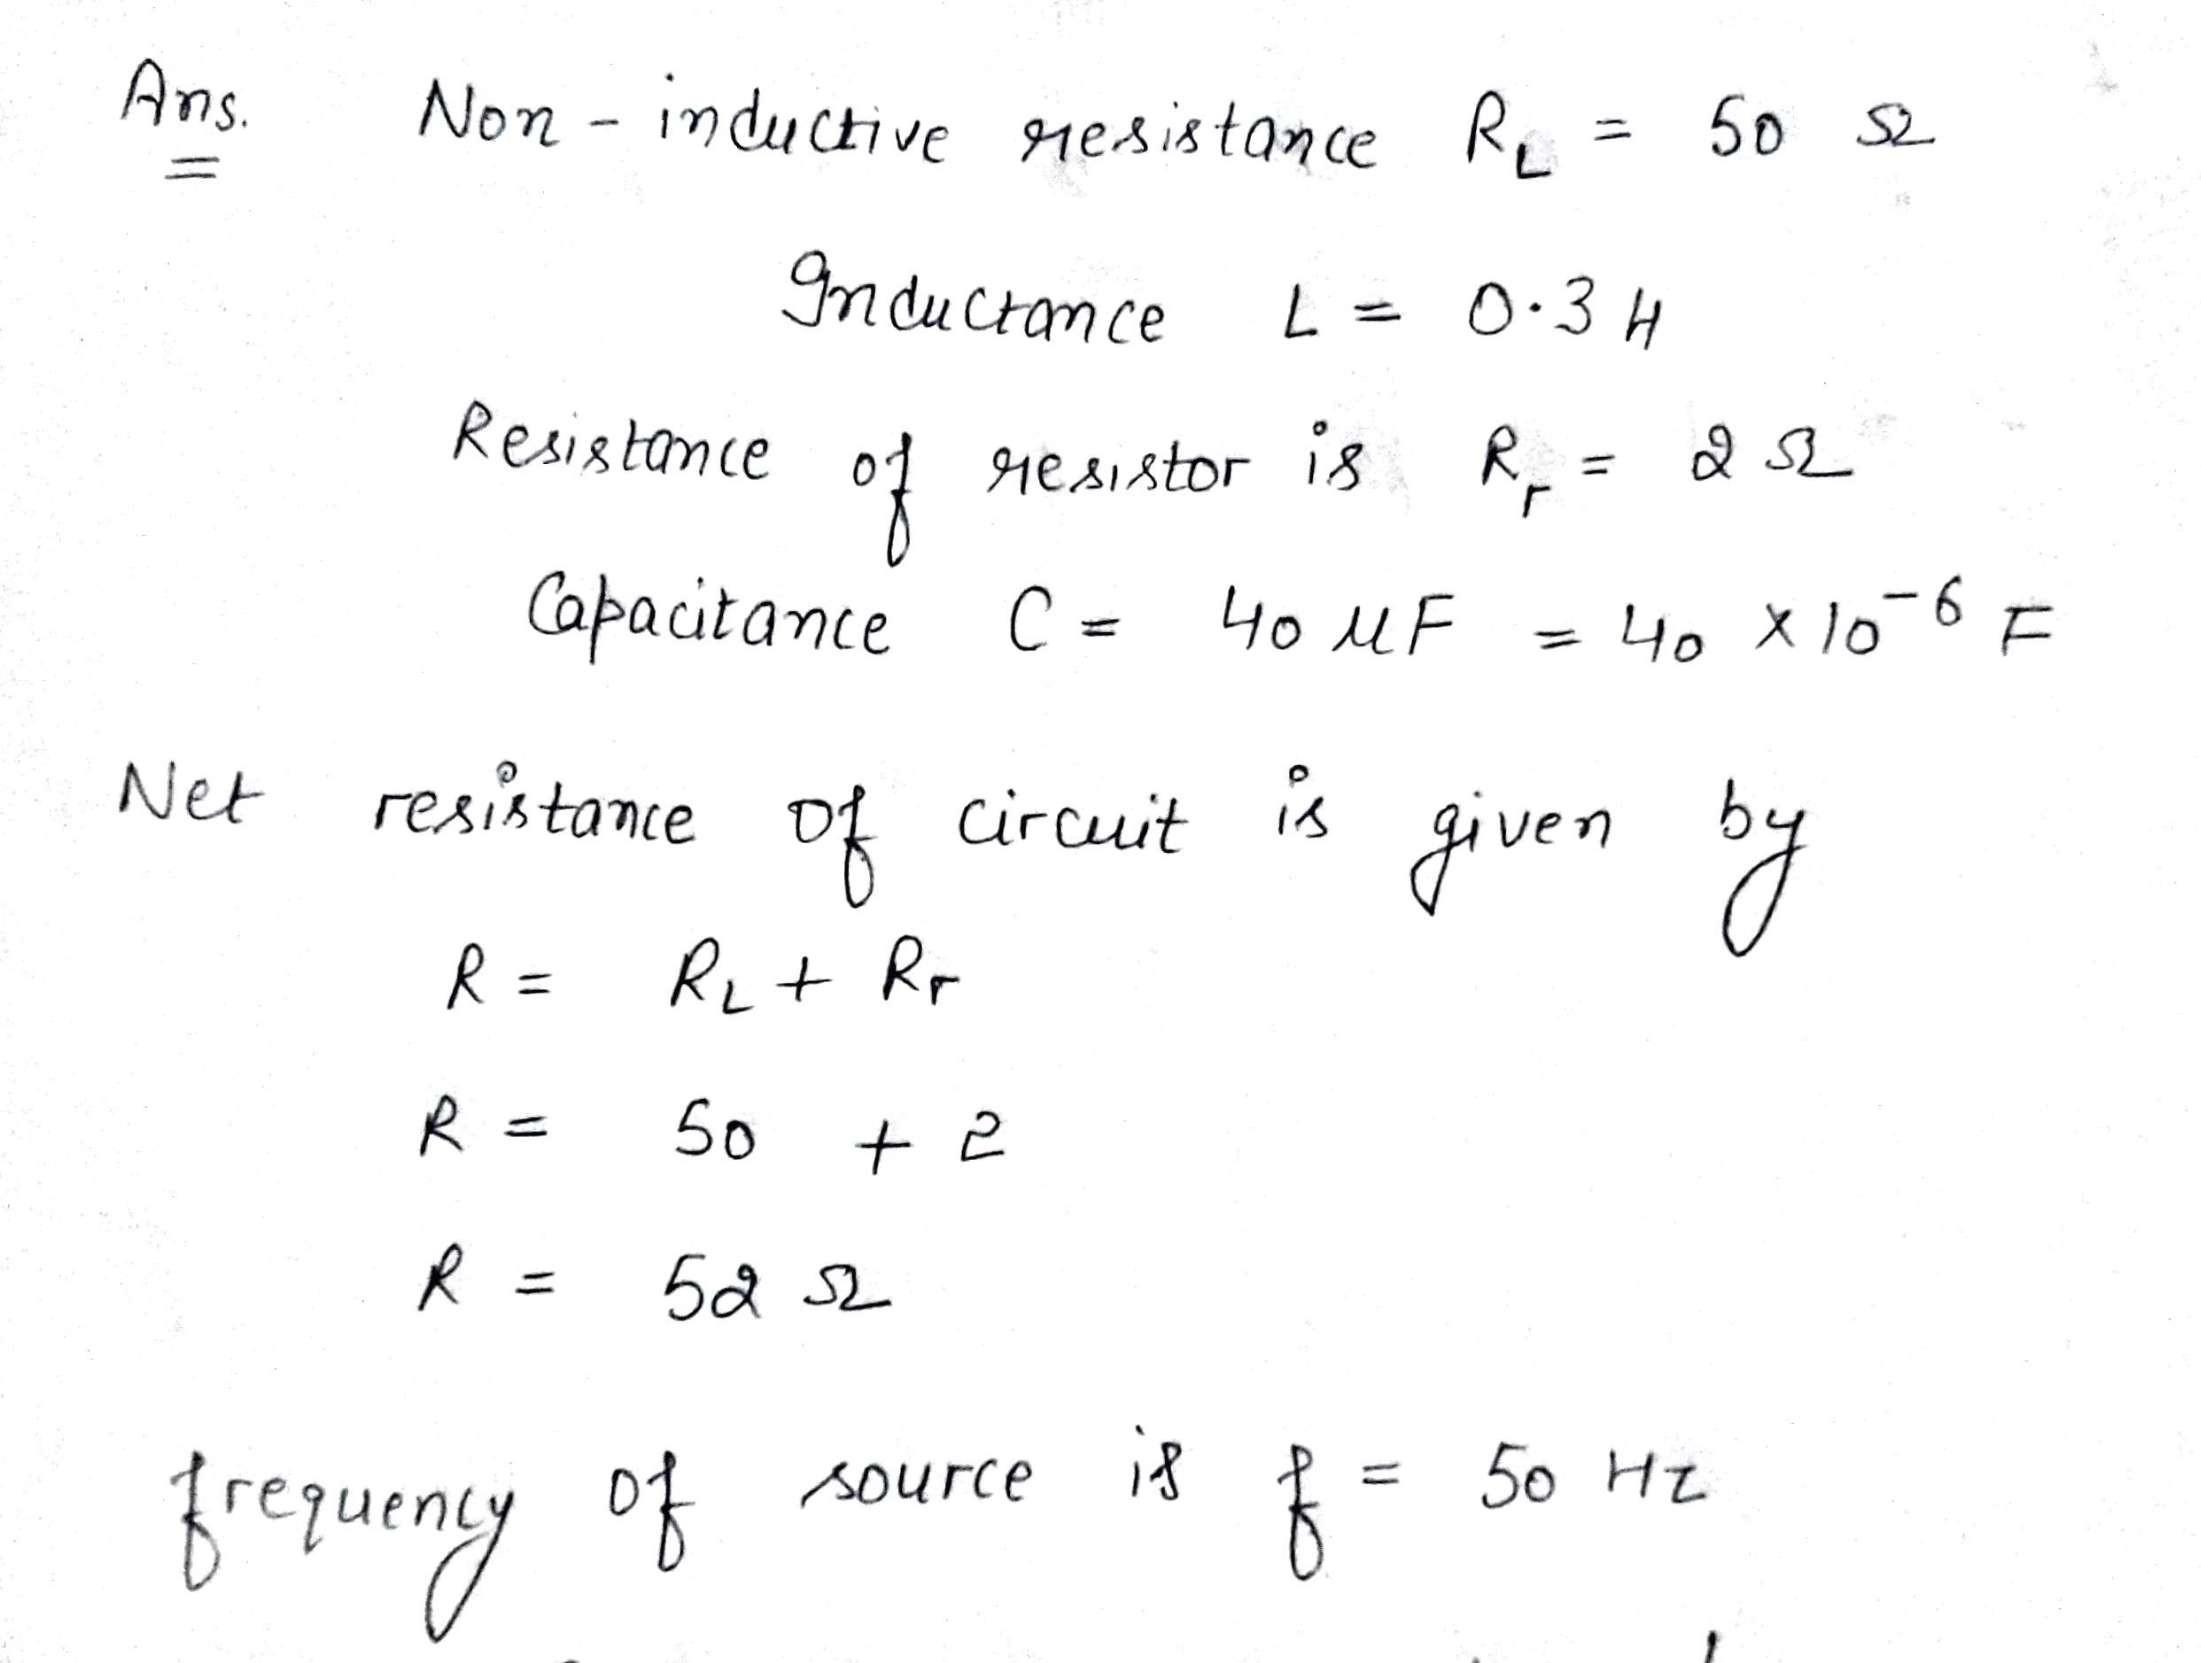 Ans. Non - inductive resistance R_L = 50 Ω
Inductance L = 0.3 H
Resistance of resistor is R_r = 2 Ω
Capacitance C = 40 μF = 40 × 10^-6 F
Net resistance of circuit is given by
R = R_L + R_r
R = 50 + 2
R = 52 Ω
frequency of source is f = 50 Hz